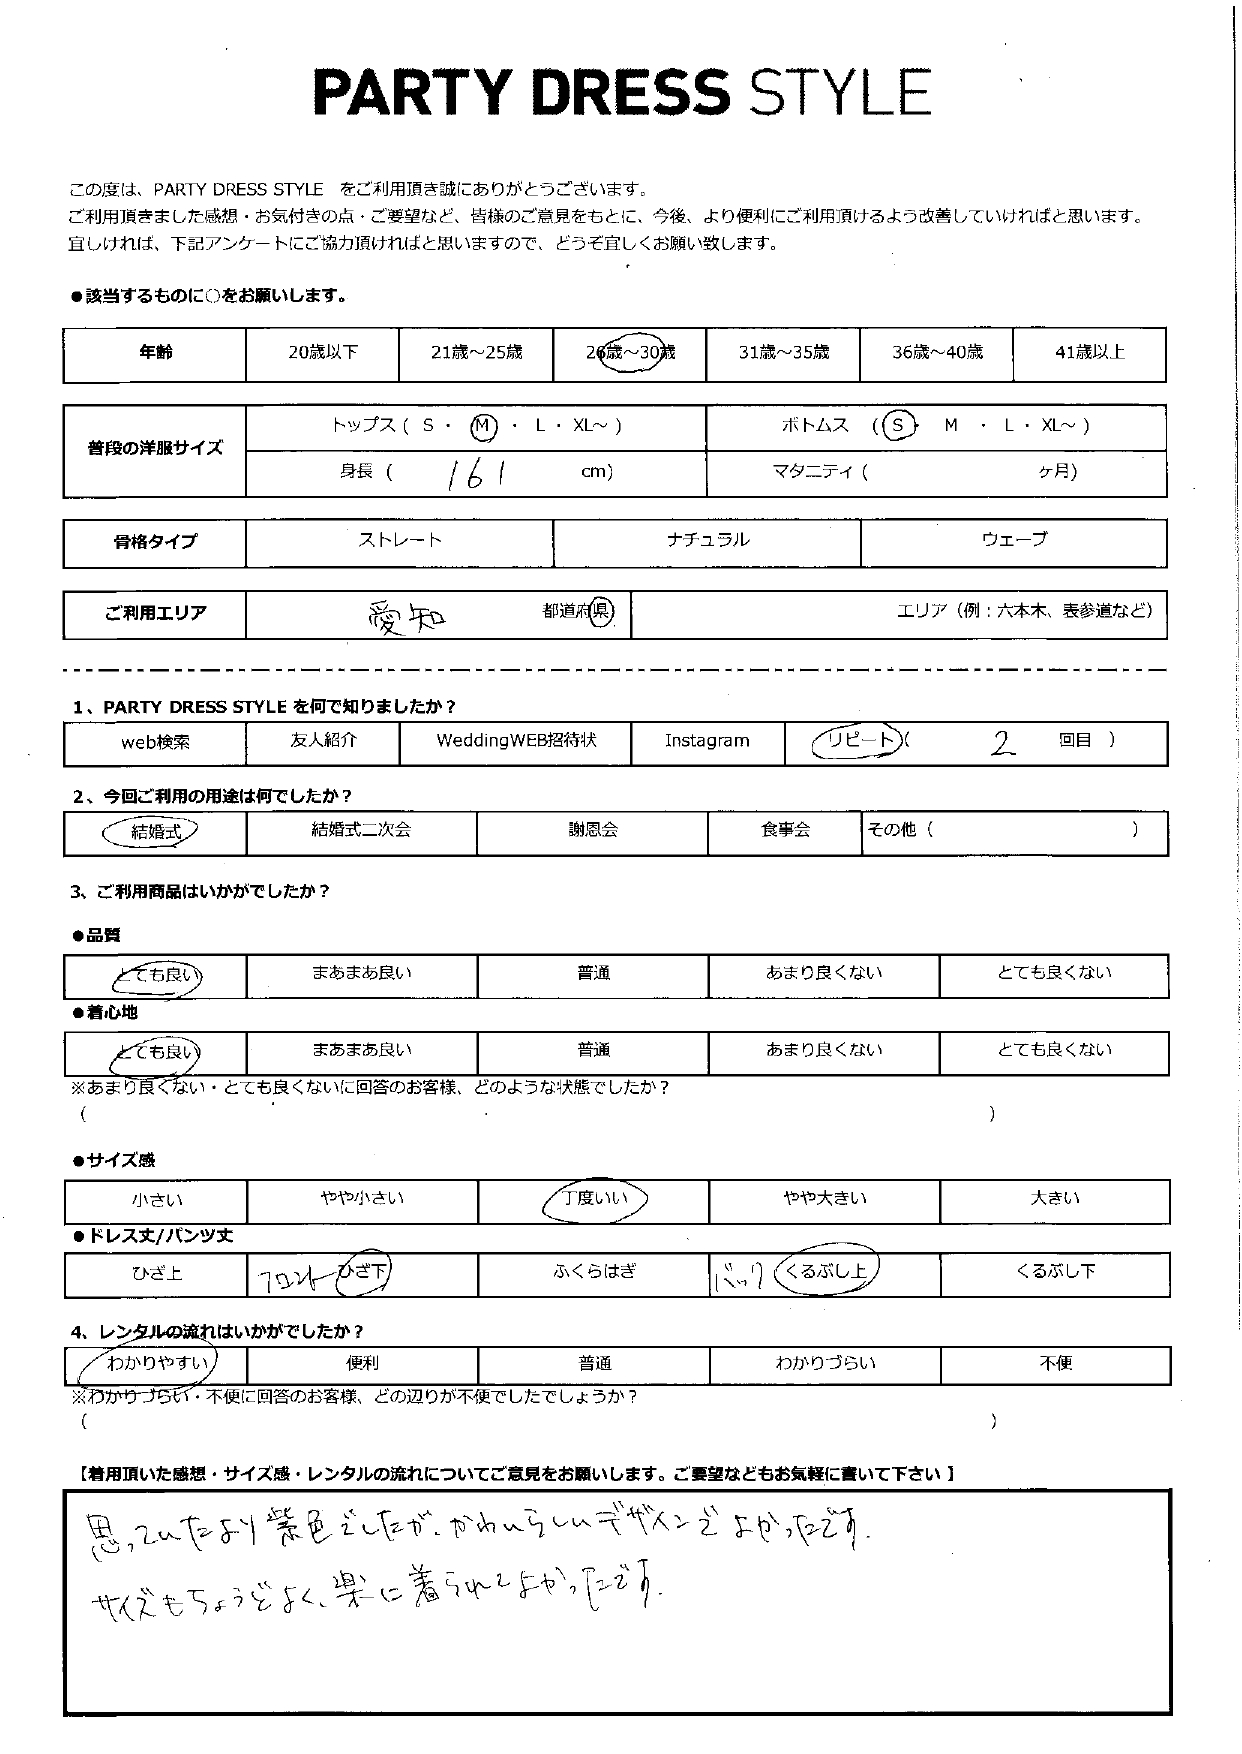 PARTY DRESS STYLE
この度は、PARTY DRESS STYLE をご利用頂き誠にありがとうございます。
ご利用頂きました感想・お気付きの点・ご要望など、皆様のご意見をもとに、今後、より便利にご利用頂けるよう改善していければと思います。
宜しければ、下記アンケートにご協力頂ければと思いますので、どうぞ宜しくお願い致します。
●該当するものに○をお願いします。
年齢 20歳以下 21歳～25歳 26歳～30歳 31歳～35歳 36歳～40歳 41歳以上
普段の洋服サイズ
トップス ( S ・ M ・ L ・ XL～ ) ボトムス ( S ・ M ・ L ・ XL～ )
身長 ( 161 cm) マタニティ ( ヶ月)
骨格タイプ ストレート ナチュラル ウェーブ
ご利用エリア 愛知 都道府県 エリア（例：六本木、表参道など）
1、PARTY DRESS STYLE を何で知りましたか？
web検索 友人紹介 WeddingWEB招待状 Instagram リピート ( 2 回目 )
2、今回ご利用の用途は何でしたか？
結婚式 結婚式二次会 謝恩会 食事会 その他 ( )
3、ご利用商品はいかがでしたか？
●品質
とても良い まあまあ良い 普通 あまり良くない とても良くない
●着心地
とても良い まあまあ良い 普通 あまり良くない とても良くない
※あまり良くない・とても良くないに回答のお客様、どのような状態でしたか？
( )
●サイズ感
小さい やや小さい 丁度いい やや大きい 大きい
●ドレス丈/パンツ丈
ひざ上 フロント ひざ下 ふくらはぎ バック くるぶし上 くるぶし下
4、レンタルの流れはいかがでしたか？
わかりやすい 便利 普通 わかりづらい 不便
※わかりづらい・不便に回答のお客様、どの辺りが不便でしたでしょうか？
( )
【着用頂いた感想・サイズ感・レンタルの流れについてご意見をお願いします。ご要望などもお気軽に書いて下さい 】
思っていたより紫色でしたが、かわいらしいデザインでよかったです。
サイズもちょうどよく、楽に着られてよかったです。